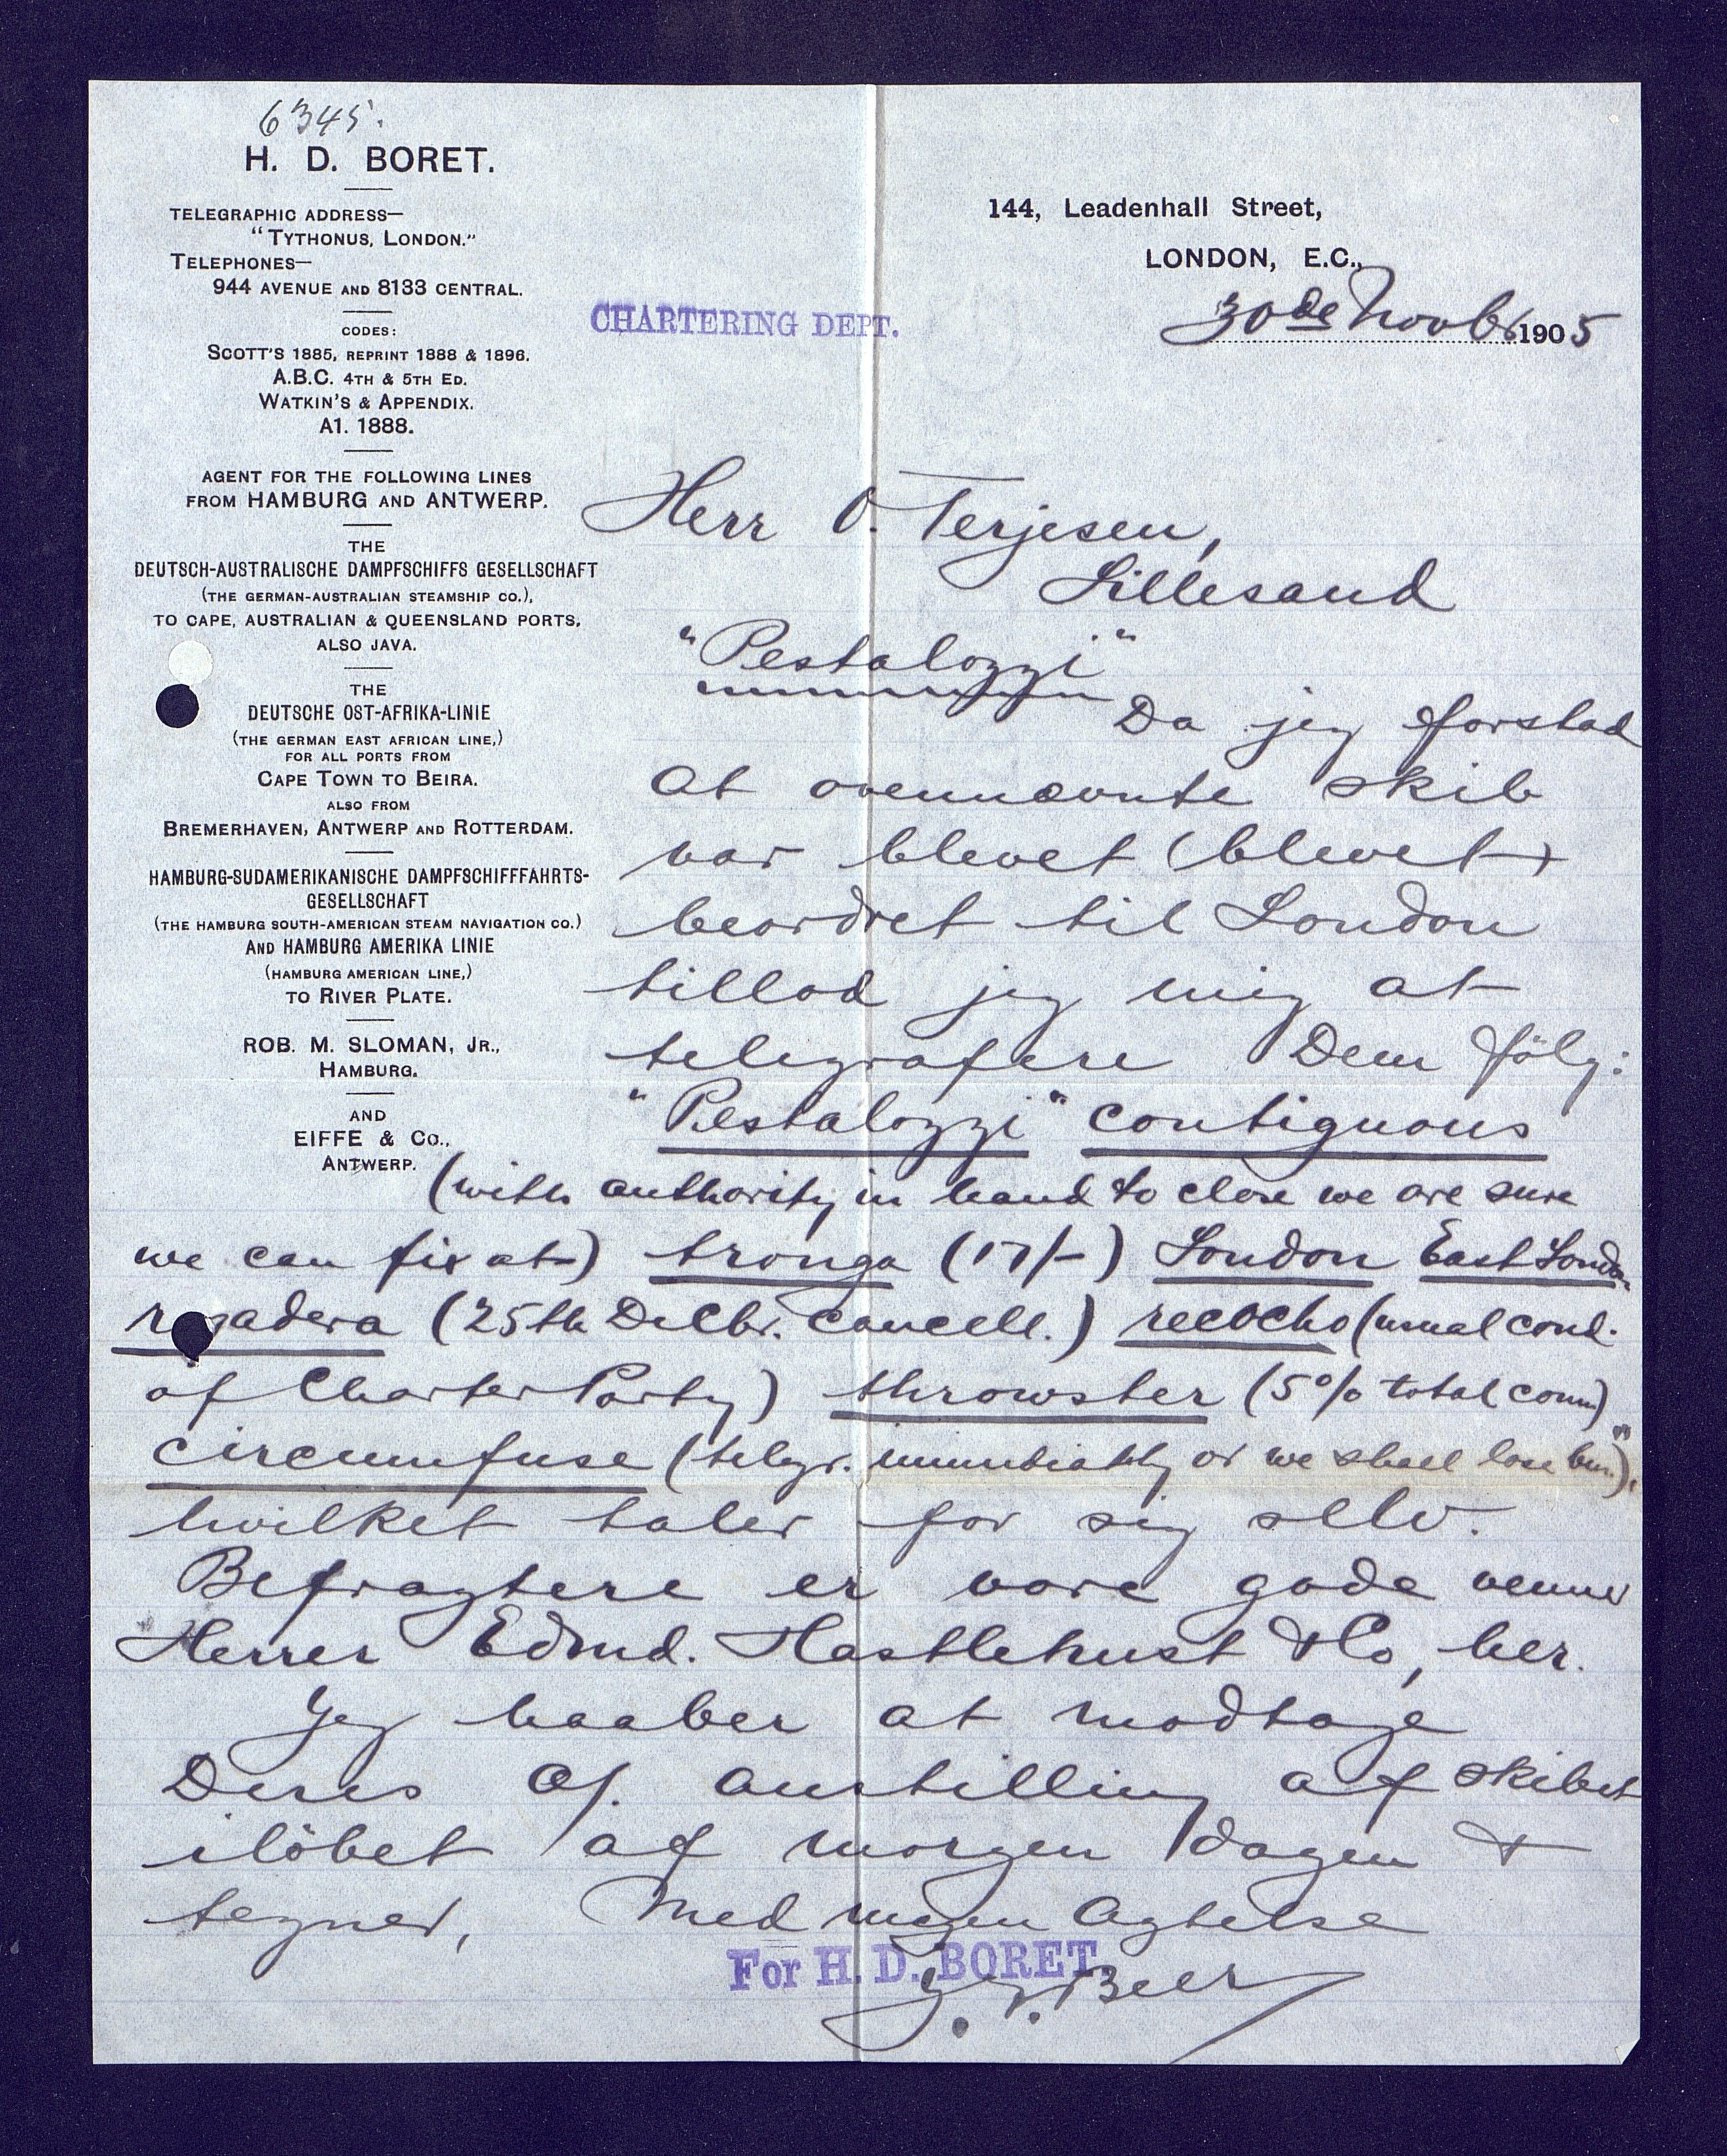 6345.
H. D. BORET.
TELEGRAPHIC ADDRESS—
"TYTHONUS, LONDON."
TELEPHONES—
944 AVENUE AND 8133 CENTRAL.
CODES:
SCOTT'S 1885, REPRINT 1888 & 1896.
A.B.C. 4TH & 5TH ED.
WATKIN'S & APPENDIX.
A1. 1888.
AGENT FOR THE FOLLOWING LINES
FROM HAMBURG AND ANTWERP.
THE
DEUTSCH-AUSTRALISCHE DAMPFSCHIFFS GESELLSCHAFT
(THE GERMAN-AUSTRALIAN STEAMSHIP CO.),
TO CAPE, AUSTRALIAN & QUEENSLAND PORTS,
ALSO JAVA.
THE
DEUTSCHE OST-AFRIKA-LINIE
(THE GERMAN EAST AFRICAN LINE,)
FOR ALL PORTS FROM
CAPE TOWN TO BEIRA.
ALSO FROM
BREMERHAVEN, ANTWERP AND ROTTERDAM.
HAMBURG-SUDAMERIKANISCHE DAMPFSCHIFFFAHRTS-
GESELLSCHAFT
(THE HAMBURG SOUTH-AMERICAN STEAM NAVIGATION CO.)
AND HAMBURG AMERIKA LINIE
(HAMBURG AMERICAN LINE,)
TO RIVER PLATE.
ROB. M. SLOMAN, JR.,
HAMBURG.
AND
EIFFE & CO.,
ANTWERP.
144, Leadenhall Street,
LONDON, E.C.,
30de Novbr 1905
CHARTERING DEPT.
Herr O. Terjesen,
Lillesand
"Pestalozzi"
Da jeg forstod
at ovennævnte skib
var blevet (blevet)
beordret til London
tillod jeg mig at
telegrafere Dem fölg:
"Pestalozzi" contiguous
(with authority in hand to close we are sure
we can fix at) tronga (17/-) London East London
(25th Decbr. cancell.) recocho (usual cond.
of Charter Party) throwster (5% total comm)
circumfuse (telegr. immediately or we shall lose bus.)",
hvilket taler for sig selv.
Befragtere er vore gode venner
Herrer Edmd. Hastlehust & Co, her.
Jeg haaber at modtage
Deres anstilling af skibet
ilöbet af morgen dagen &
tegner, Med megen Agtelse
For H. D. BORET.